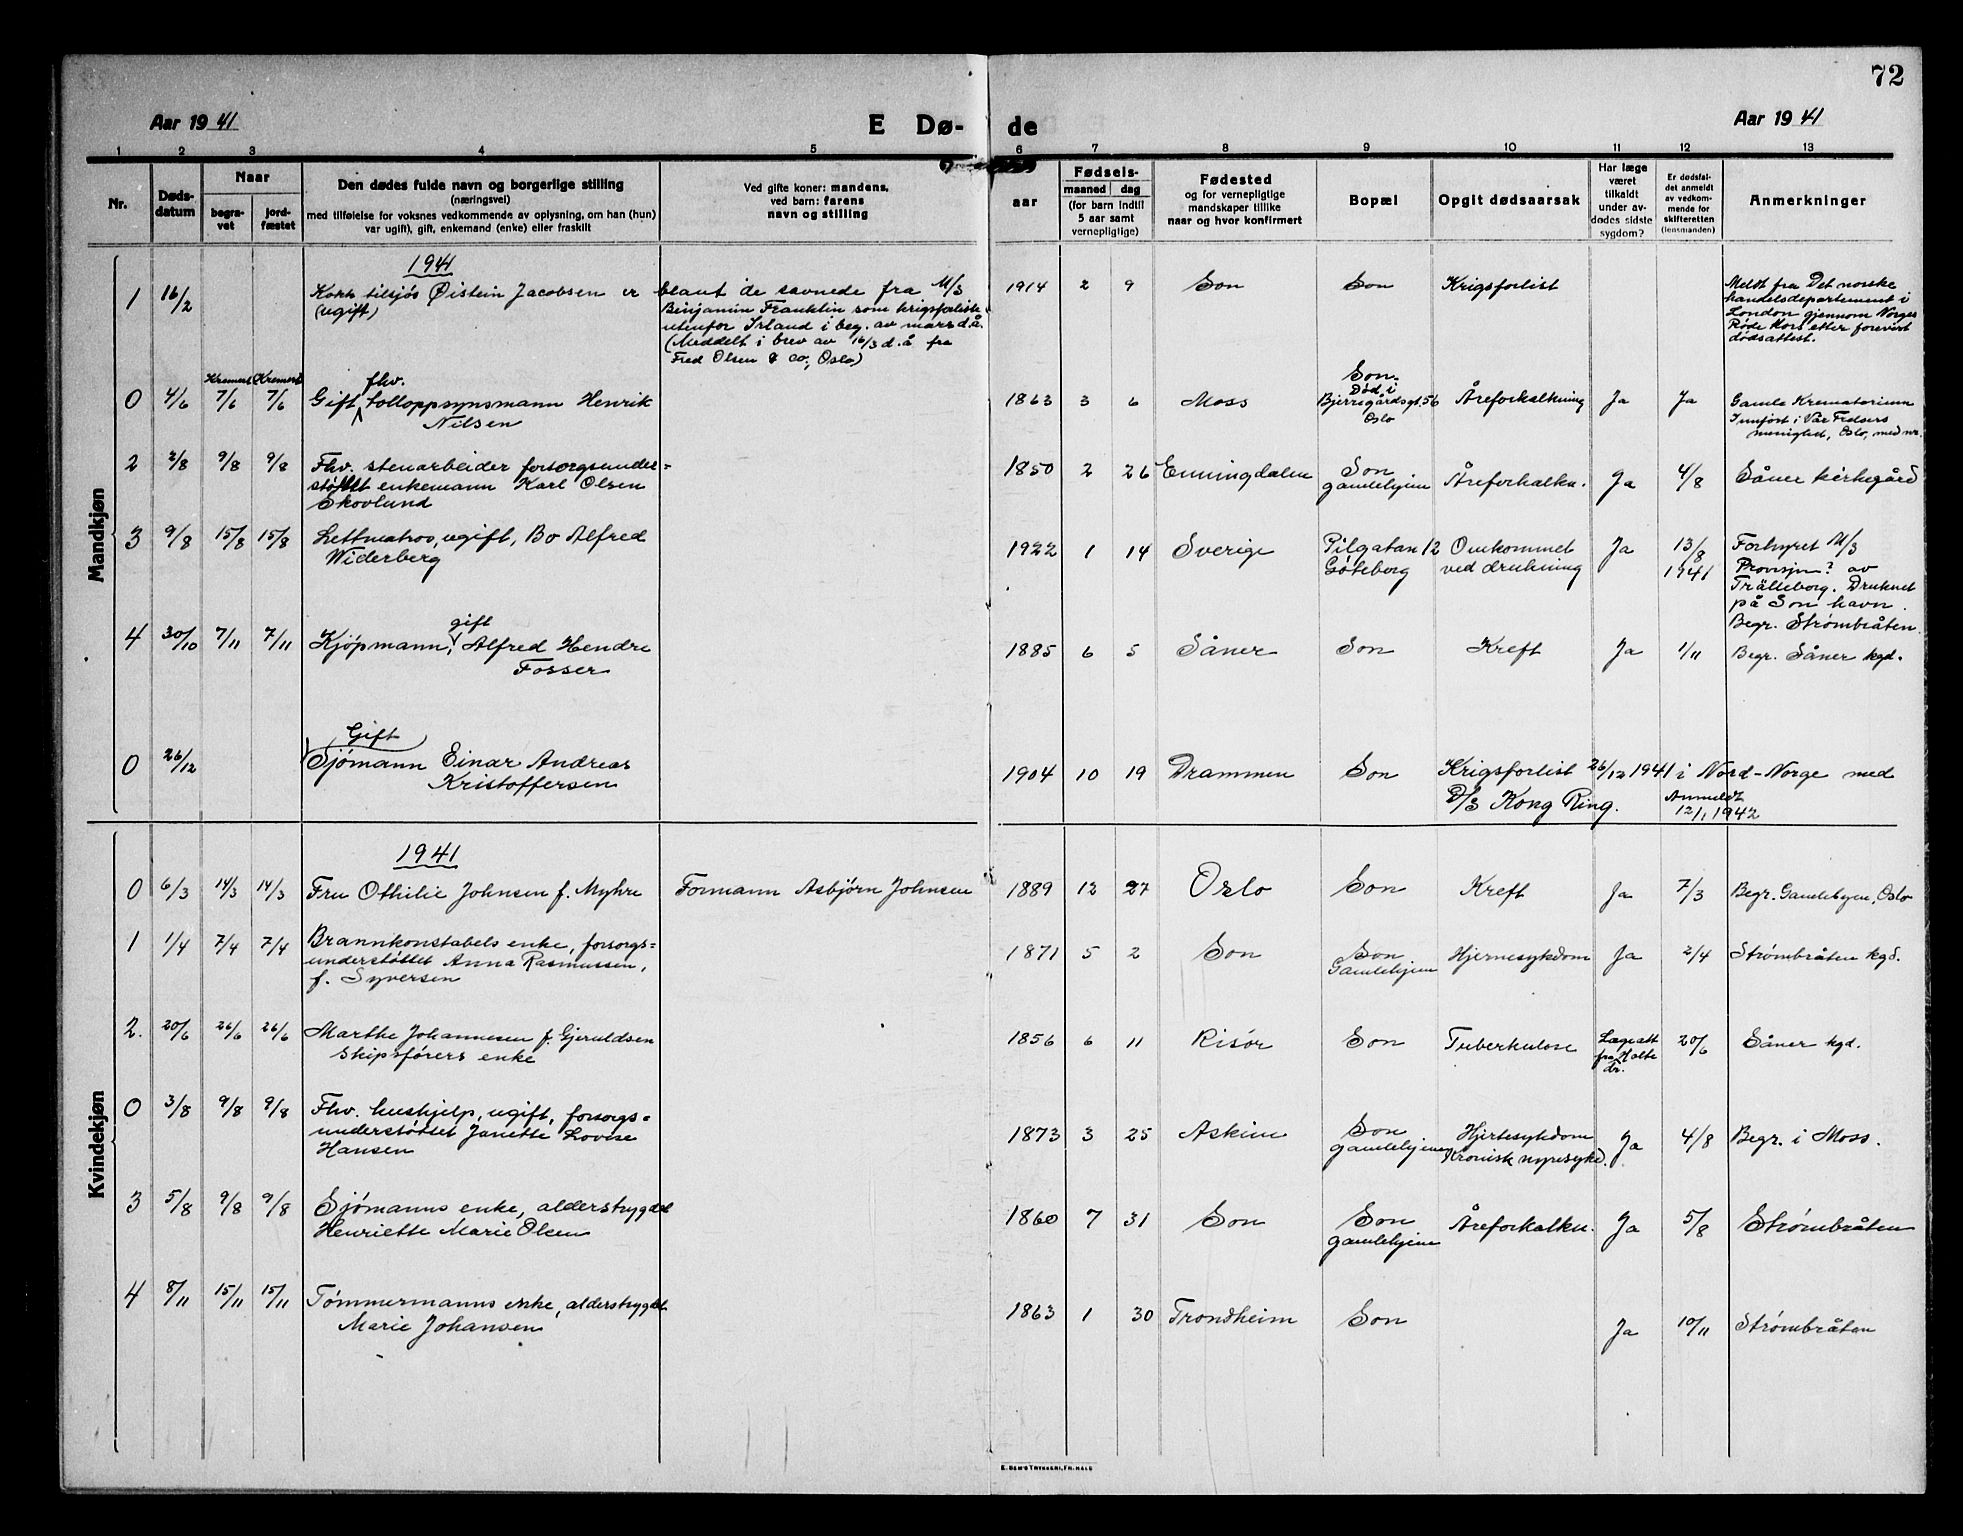 72
Aar 1941
E Dø-
de
Aar 1941
1 2 3 4 5 6 7 8 9 10 11 12 13
Nr.
Døds-
datum
Naar
begra-
vet
jord-
fæstet
Den dødes fulde navn og borgerlige stilling
(næringsvei)
med tilføielse for voksnes vedkommende av oplysning, om han (hun)
var ugift), gift, enkemand (enke) eller fraskilt
Ved gifte koner: mandens,
ved barn: farens
navn og stilling
aar
Fødsels-
maaned dag
(for barn indtil
5 aar samt
vernepligtige)
Fødested
og for vernepligtige
mandskaper tillike
naar og hvor konfirmert
Bopæl
Opgit dødsaarsak
Har læge
været
tilkaldt
under av-
dødes sidste
sygdom?
Er dødsfal-
det anmeldt
av vedkom-
mende for
skifteretten
(lensmanden)
Anmerkninger
Mandkjøn
1941
1 16/2 Kokk tilsjøs Øistein Jacobsen er blant de savnede fra M/S
(ugift)
Binjamin Franklin som krigsforliste
utenfor Irland i beg. av mars d.å.
(Meddelt i brev av 16/3 d.å fra
Fred Olsen & Co, Oslo)
1914 2 9 Son Son Krigsforlist
Meldt fra Det norske
handelsdepartement i
London gjennom Norges
Røde Kors etter forevist
dødsattest.
Kremert Kremert
0 4/6 7/6 7/6 Gift fhv. tolloppsynsmann Henrik
Nilsen
1863 3 6 Moss
Son.
Død i
Bjerregårdsgt. 56
Oslo
Åreforkalkning Ja Ja
Gamle Krematorium
Innført i Vår Frelsers
menighed, Oslo, med nr.
2 2/8 9/8 9/8 Fhv. stenarbeider forsorgsunder=
støttet enkemann Karl Olsen
Skovlund
1850 2 26 Enningdalen Son
gamlehjem
Åreforkalkn. Ja 4/8 Såner kirkegård
3 9/8 15/8 15/8 Lettmatros, ugift, Bo Alfred
Widerberg
1922 1 14 Sverige Pilgatan 12
Göteborg
Omkommet
ved drukning
Ja 13/8
1941
Forhyret M/S
Provisjn? av
Trälleborg. Druknet
på Son havn.
Begr. Strømbråten.
4 30/10 7/11 7/11 Kjøpmann, gift Alfred Hendre
Fosser
1885 6 5 Såner Son Kreft Ja 1/11 Begr. Såner kgd.
0 26/12 Gift
Sjømann Einar Andreas
Kristoffersen
1904 10 19 Drammen Son Krigsforlist 26/12 1941 i Nord-Norge med
D/S Kong Ring.
Anmeldt
12/1 1942
Kvindekjøn
1941
0 6/3 14/3 14/3 Fru Othilie Johnsen f. Myhre Formann Asbjørn Johnsen
1889 12 27 Oslo Son Kreft Ja 7/3 Begr. Gamlebyen, Oslo
1 1/4 7/4 7/4 Brannkonstabels enke, forsorgs=
understøttet Anna Rasmussen,
f. Syversen
1871 5 2 Son Son
Gamlehjem
Hjernesykdom Ja 2/4 Strømbråten kgd.
2. 20/6 26/6 26/6 Marthe Johannesen f. Gjeruldsen
Skipsførers enke
1856 6 11 Risør Son Tuberkulose Lægeatt
fra Holte
dr.
20/6 Såner kgd.
0 3/8 9/8 9/8 Fhv. hushjelp, ugift, forsorgs=
understøttet Janette Lovise
Hansen
1873 3 25 Askim Son
gamlehjem
Hjertesykdom
Kronisk nyresykd.
Ja 4/8 Begr. i Moss.
3 5/8 9/8 9/8 Sjømanns enke, alderstrygdet
Henriette Marie Olsen
1860 7 31 Son Son
gamlehjem
Åreforkalkn. Ja 5/8 Strømbråten
4 8/11 15/11 15/11 Tømmermanns enke, alderstrygdet
Marie Johansen
1863 1 30 Trondheim Son Ja 10/11 Strømbråten
E. SEM'S TRYKKERI, FR.HALD